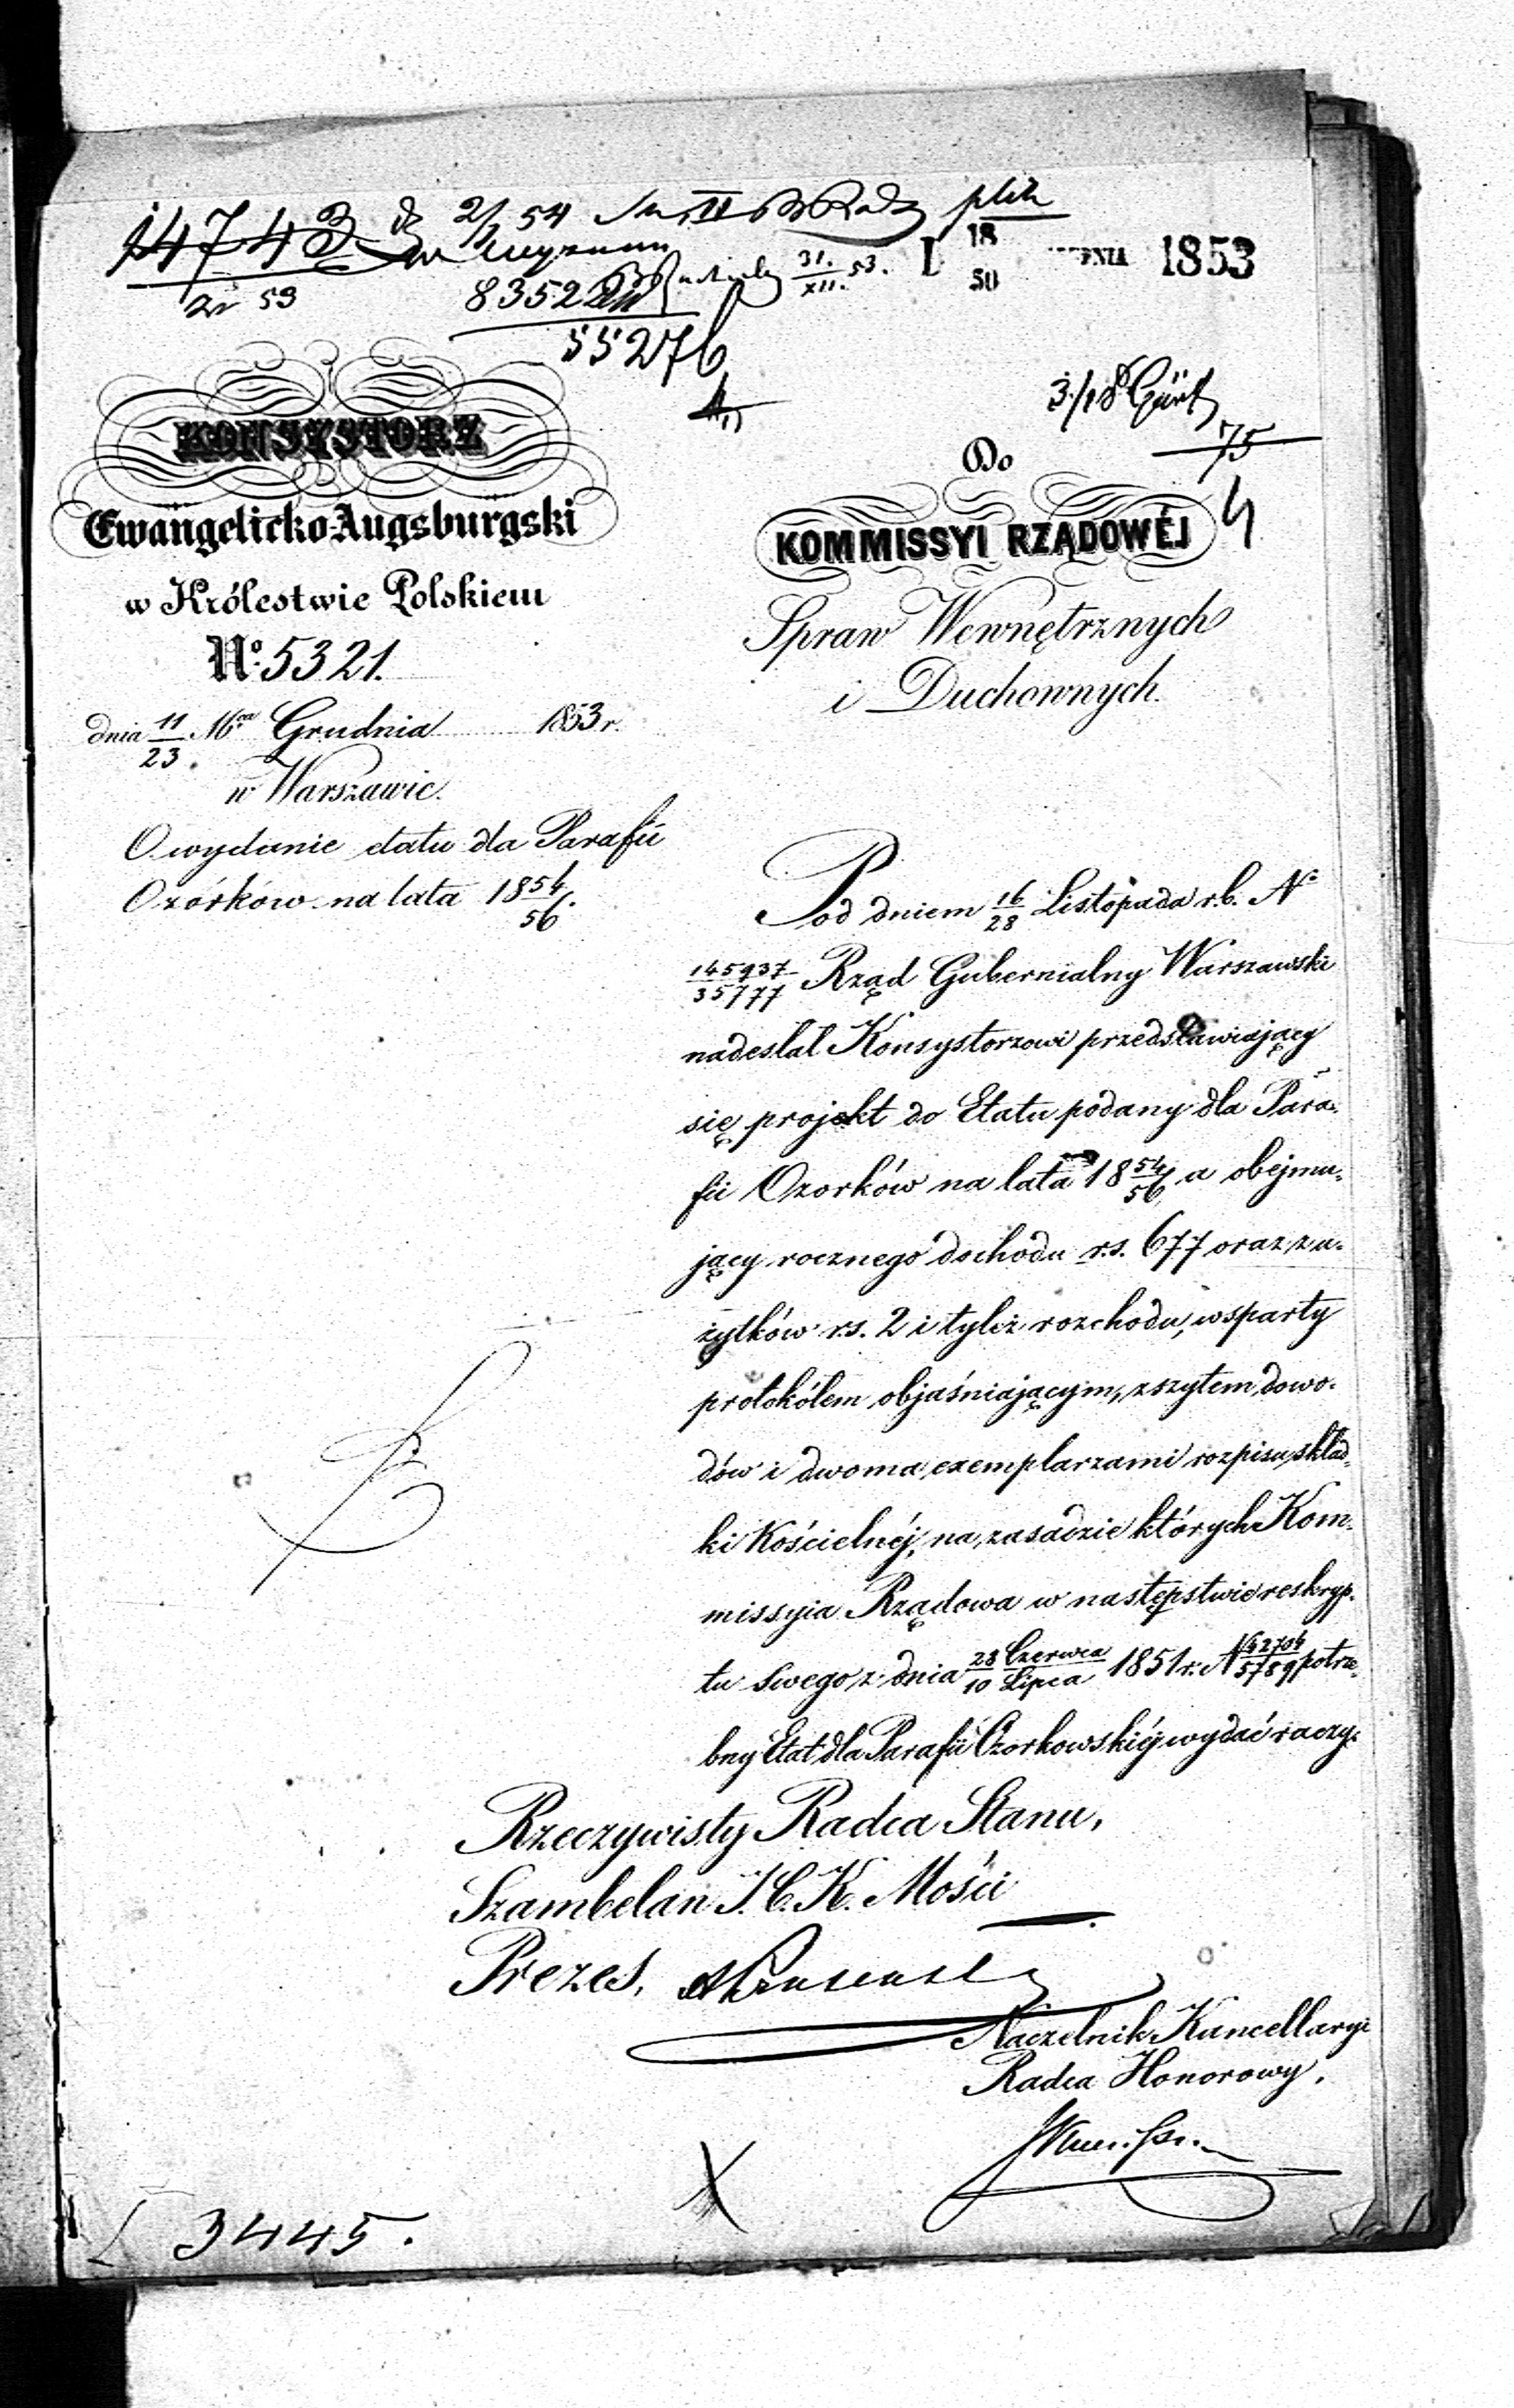 14743
53
2/1 54
plik
83522
31./XII. 53.
18
50
1853
55276
3/18
75
4
KONSYSTORZ
Ewangelicko-Augsburgski
w Królestwie Polskiem
No. 5321.
dnia 11/23 Mca Grudnia 1853 r.
w Warszawie.
O wydanie etatu dla Parafii
Ozorków na lata 1854/56.
Do
KOMMISSYI RZĄDOWÉJ
Spraw Wewnętrznych
i Duchownych.
Pod dniem 16/28 Listopada r.b. No
145937/35777 Rząd Gubernialny Warszawski
nadesłał Konsystorzowi przedstawiający
się projekt do Etatu podany dla Para-
fii Ozorków na lata 1854/56 a obejmu-
jący rocznego dochodu r.s. 677 oraz zu-
żytków r.s. 2 i tyleż rozchodu, wsparty
protokółem objaśniającym, zszytem dowo-
dów i dwoma exemplarzami rozpisu skład-
ki Kościelnéj, na zasadzie których Kom-
missyia Rządowa w następstwie reskryp-
tu swego z dnia 28 Czerwca/10 Lipca 1851 r. N 42704/5789 potrze-
bny Etat dla Parafii Ozorkowskiéj wydać raczy.
Rzeczywisty Radca Stanu,
Szambelan J. C. K. Mości
Prezes,
Naczelnik Kancellaryi
Radca Honorowy,
3445.